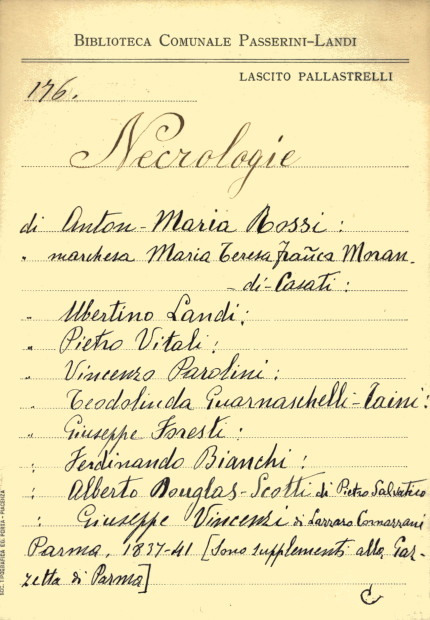 BIBLIOTECA COMUNALE PASSERINI-LANDI
LASCITO PALLASTRELLI
176.
Necrologie
di Anton-Maria Rossi:
" marchesa Maria Teresa Frañca Moran-
-di-Casati:
" Ubertino Landi:
" Pietro Vitali:
" Vincenzo Parolini:
" Teodolinda Guarnaschelli-Taini:
" Giuseppe Foresti:
" Ferdinando Bianchi:
" Alberto Douglas-Scotti di Pietro Salvatico
" Giuseppe Vincenzi di Lazzaro Cornazzani
Parma, 1837-41 [Sono supplementi alla Gaz-
zetta di Parma]
SOC. TIPOGRAFICA ED. PORTA - PIACENZA